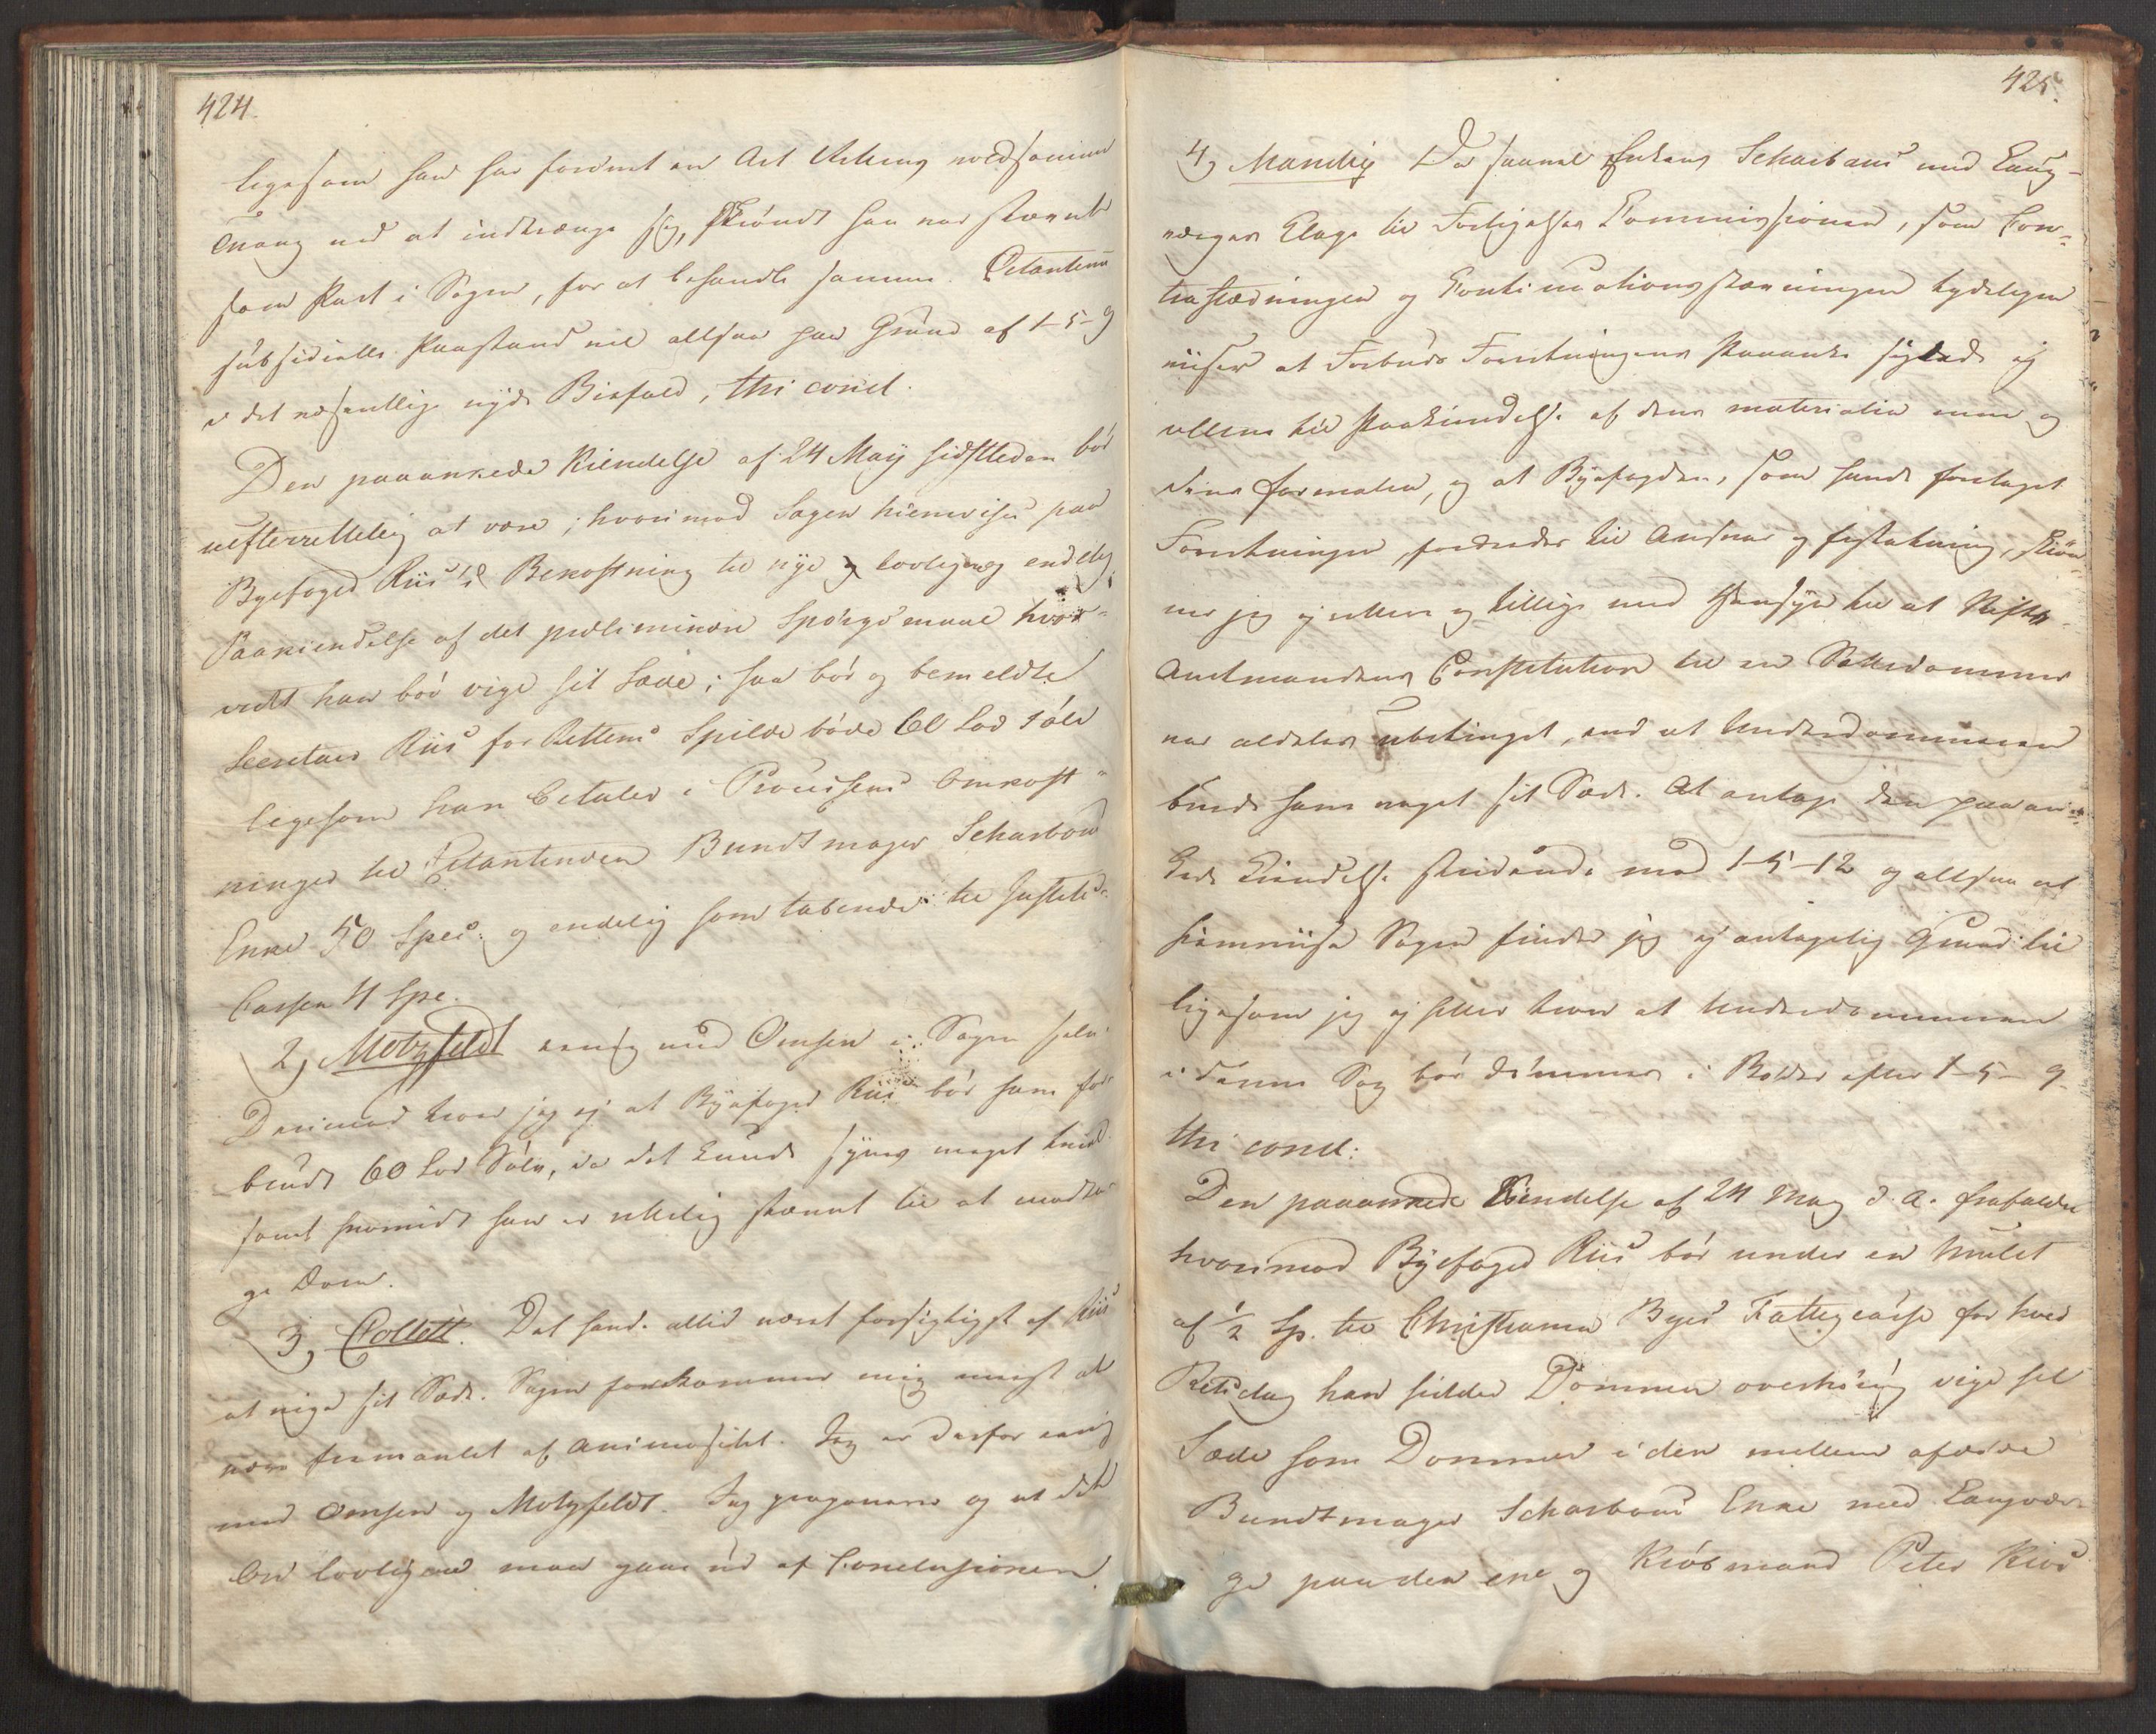 424.
ligesom han har formet en Art Attring voldsomme
Trang ved at indtrænge sig, skiøndt han var stævnt
som Part i Sagen, for at behandle samme. Citantens
subsidialle Paastand vil altsaa paa Grund af 1-5-9
i det væsentlige nyde Biefald, thi concl.
Den paaankede Kiendelse af 24 Maij sidstleden bør
uefterrettelig at være; hvorimod Sagen hiemvises paa
Byefoged Riis's Bekostning til nye og lovligere endelig
Paakiendelse af det preliminaire Spørgsmaal hvor-
vidt han bør vige sit Sæde; saa bør og bemeldte
Secretair Riis for Rettens Spilde bøde 60 Lod Sølv
ligesom han betaler i Processens Omkost-
ninger til Citantinden Bundtmager Scharbous
Enke 50 Spec. og endelig som tabende til Justits-
Cassen 4 Spe.
2, Motzfeldt eenig med Omsen i Sagen selv.
Derimod troer jeg ej at Byefoged Riis bør have for-
brudt 60 Lod Sølv, da det kunde synes meget tvivl-
somt hvorvidt han er rettelig stævnt til at modta-
ge Dom.
3, Collett. Det havde altid været forsigtigst af Riis
at vige sit Sæde. Sagen forekommer mig mest at
være fremavlet af Animositet. Jeg er derfor eenig
med Omsen og Motzfeldt. Jeg proponerer og at det
Ord lovligere maa gaae ud af Conclusionen.
425.
4, Mandix Da saavel Enkens Scharbaus med Laug-
værges Klage til Forligelses Commissionen, som Con-
trastævningen og Continuationsstævningen tydeligen
viiser at Forbuds Forretningens Paaanke sigtede ej
allene til Paakiendelse af dens materialia men og
dens formalia, og at Byefogden, som havde foretaget
Forretningen, fordredes til Ansvar og Erstatning, skiøn-
ner jeg ej rettere og tillige med Hensyn til at Stifts-
Amtmandens Constitution til en Sættedommer
var aldeles ubetinget, end at Underdommeren
burde have veget sit Sæde. At antage den paaan-
kede Kiendelse stridende mod 1-5-12 og altsaa at
hiemviise Sagen finder jeg ej antagelig Grund til
ligesom jeg ej heller troer at Underdommeren
i denne Sag bør dømmes i Bøder efter 1-5-9
thi concl:
Den paaankede Kiendelse af 24 May d. A. frafaldes
hvorimod Byefoged Riis bør under en Mulct
af 1/2 Sp. til Christiania Byes Fattigcasse for hver
Retsdag han sidder Dommen overhørig vige sit
Sæde som Dommer i den mellem afdøde
Bundtmager Scharbous Enke med Laugvær-
ge paa den ene og Kiøbmand Peder Riis